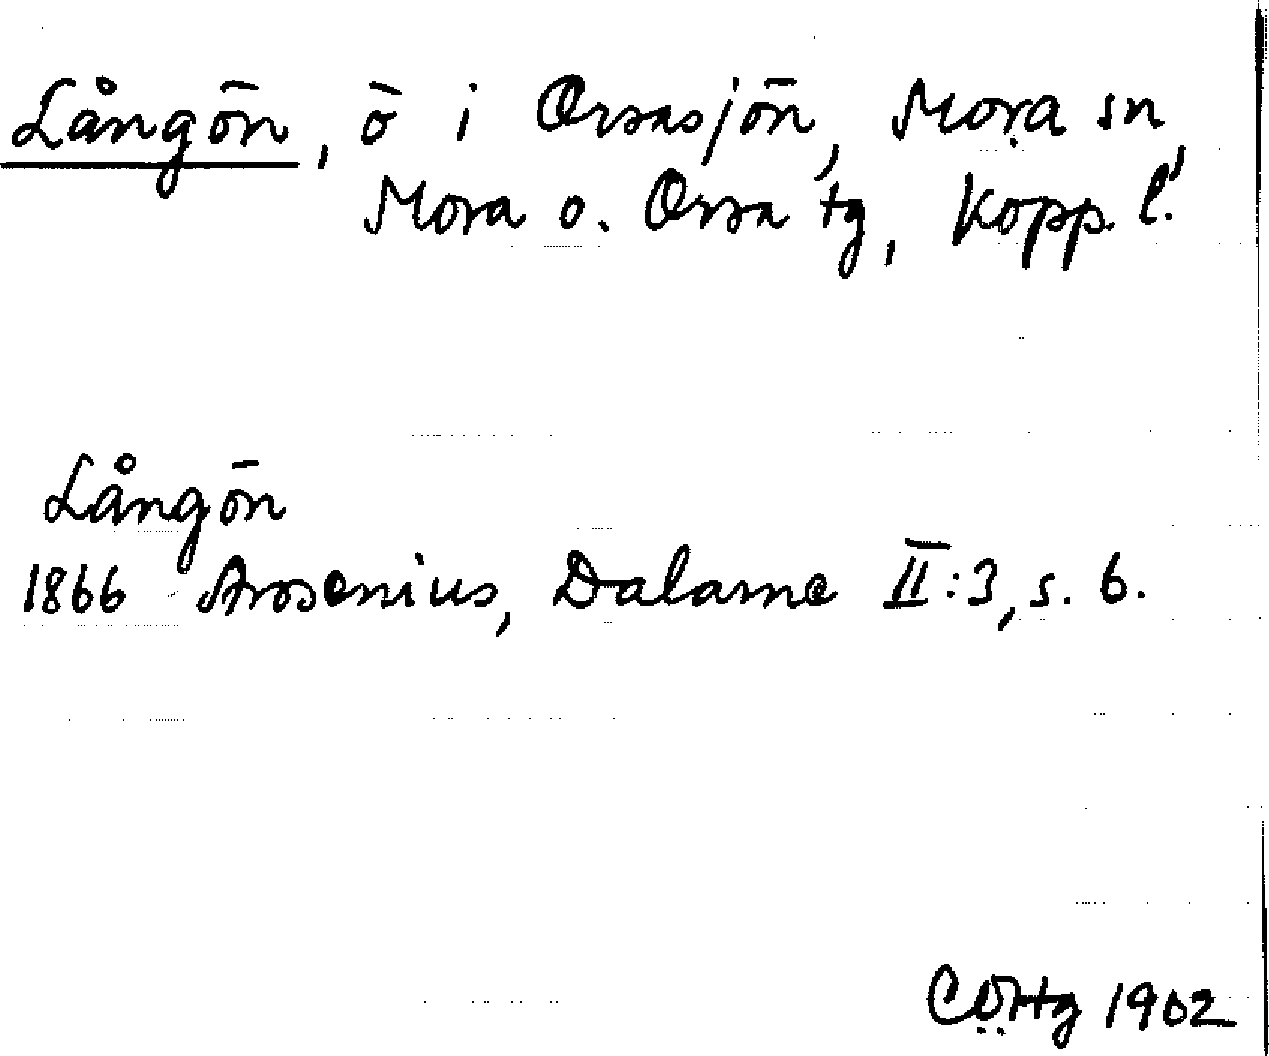 Långön, ö i Orsasjön, Mora sn,
Mora o. Orsa tg, Kopp. l.
Långön
1866 Arosenius, Dalarne II:3, s. 6.
1902